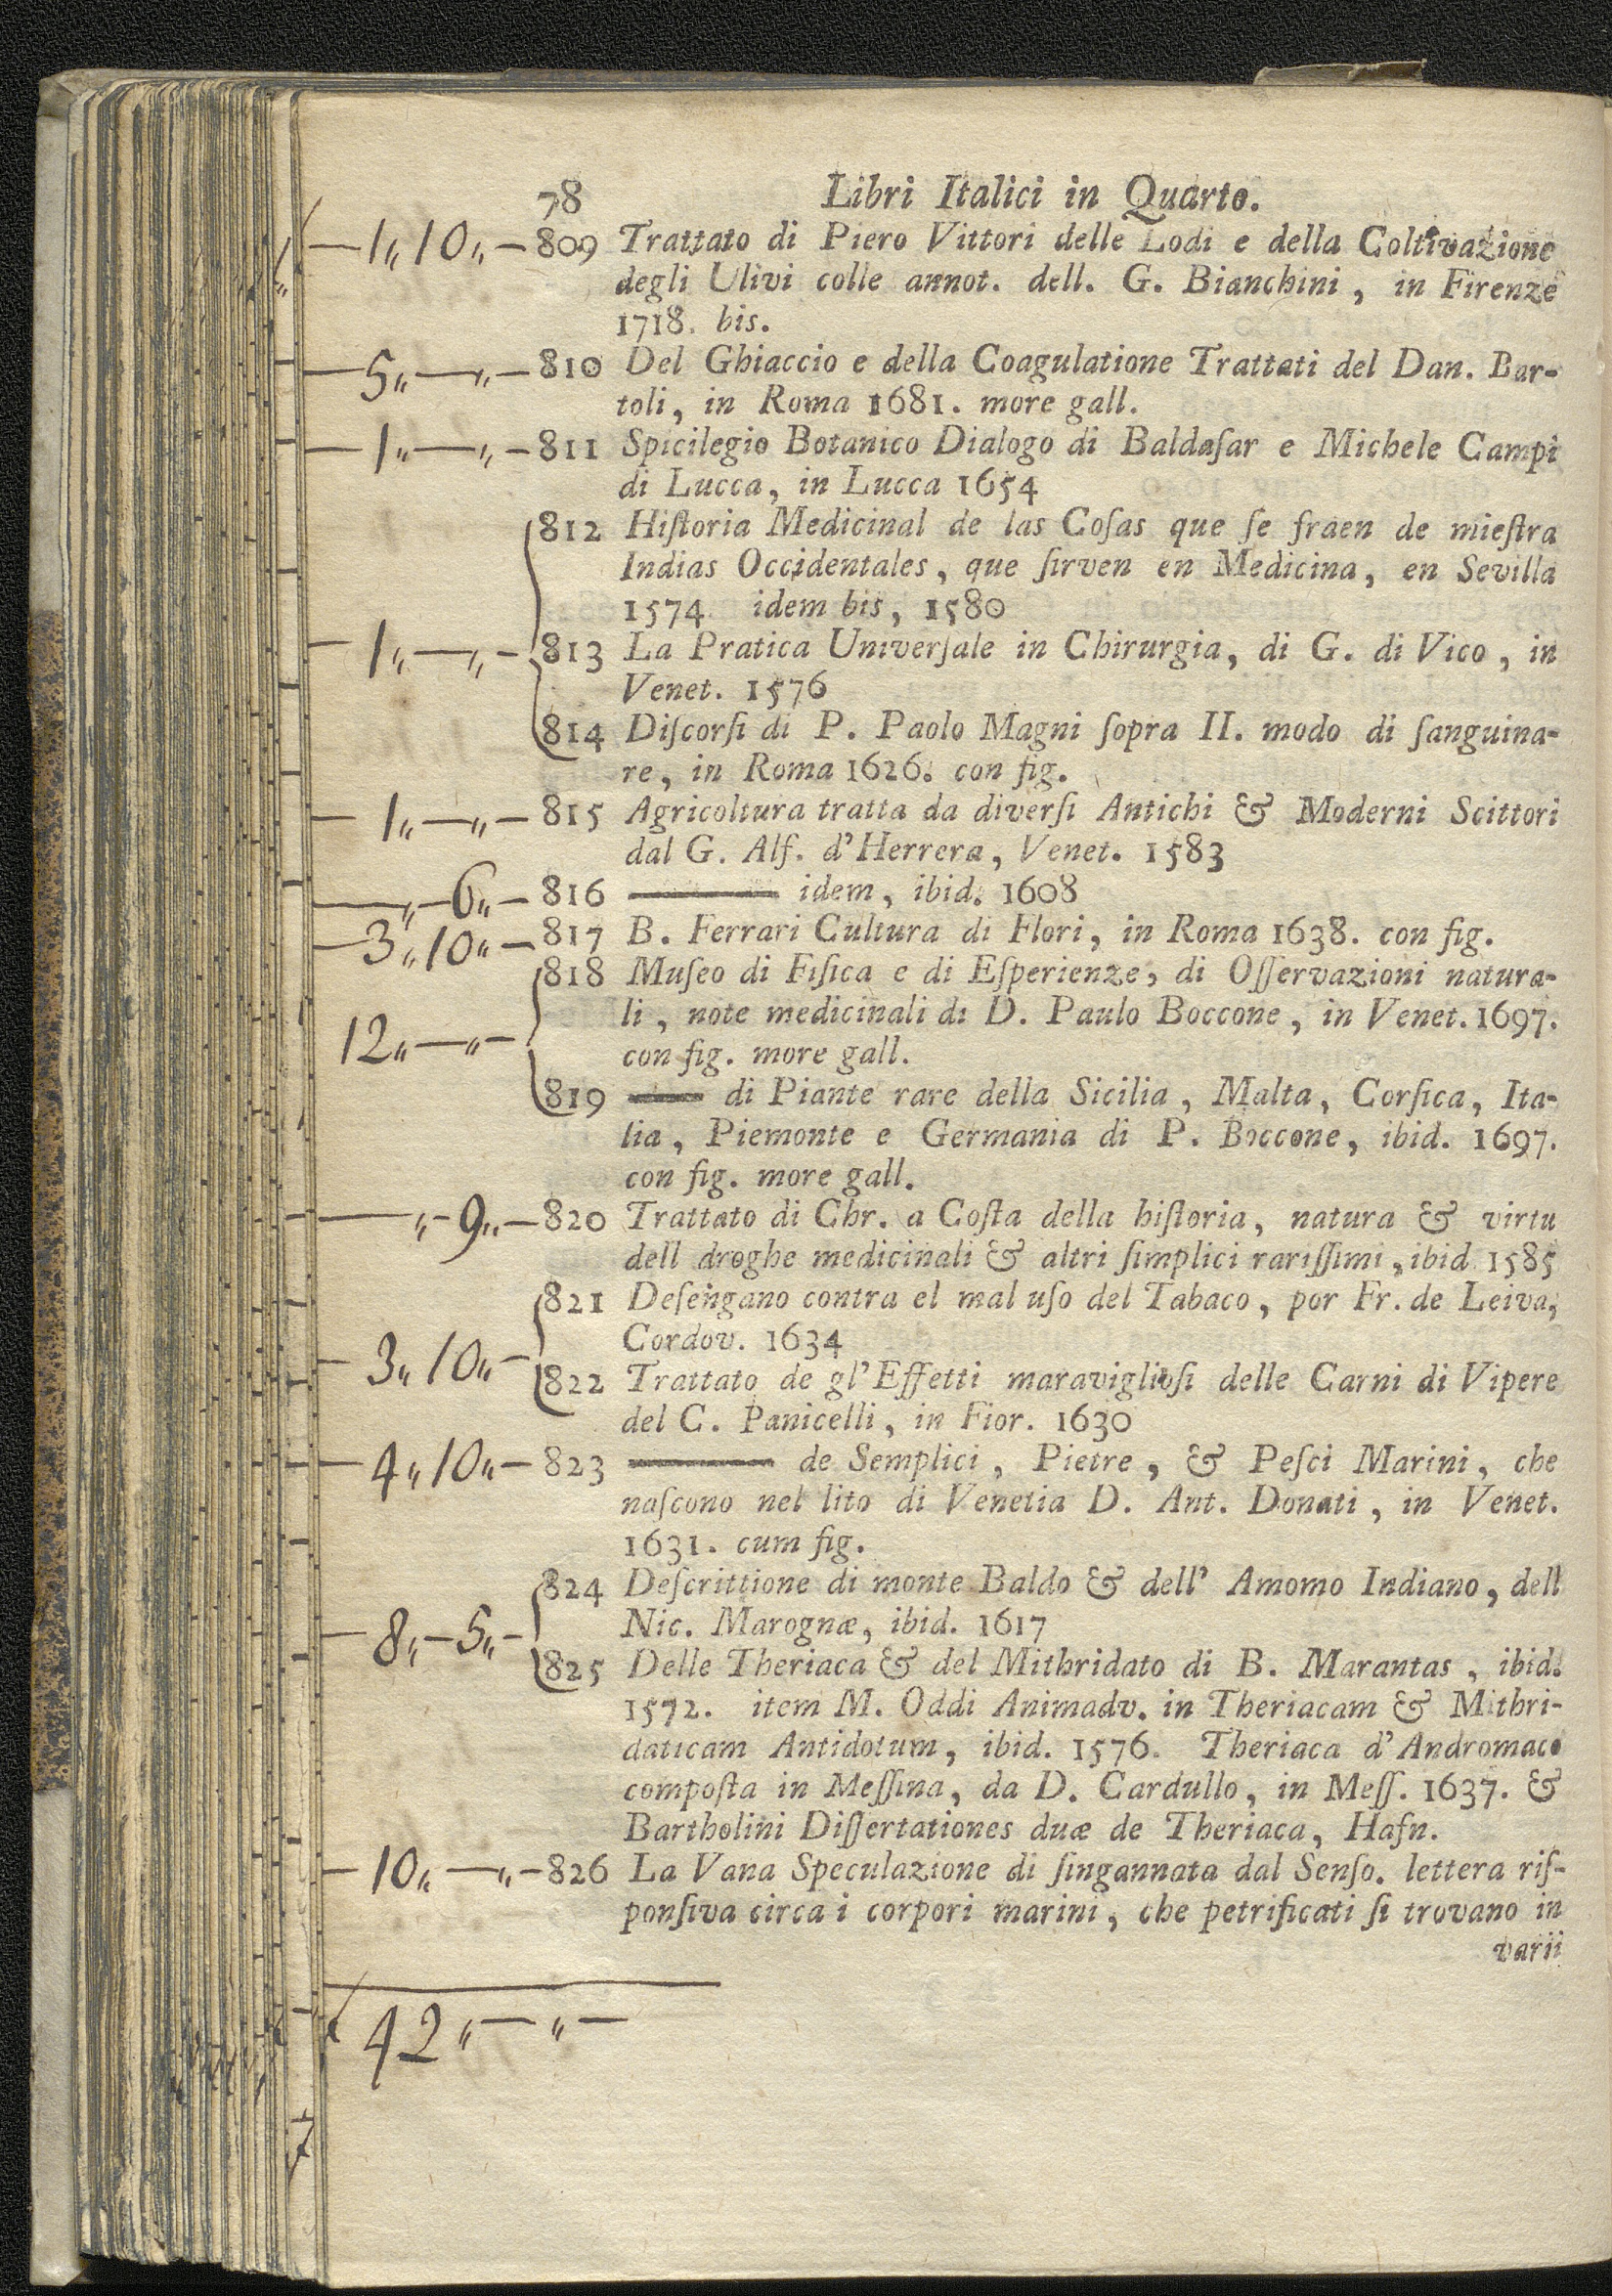 78 Libri Italici in Quarto.
1„ 10„ — 809 Trattato di Piero Vittori delle Lodi e della Coltivazione
degli Ulivi colle annot. dell. G. Bianchini, in Firenze
1718. bis.
5„ — „ — 810 Del Ghiaccio e della Coagulatione Trattati del Dan. Bar-
toli, in Roma 1681. more gall.
1„ — „ — 811 Spicilegio Botanico Dialogo di Baldaſar e Michele Campi
di Lucca, in Lucca 1654
812 Hiſtoria Medicinal de las Coſas que ſe fraen de mieſtra
Indias Occidentales, que ſirven en Medicina, en Sevilla
1574 idem bis, 1580
1„ — „ — 813 La Pratica Univerſale in Chirurgia, di G. di Vico, in
Venet. 1576
814 Diſcorſi di P. Paolo Magni ſopra II. modo di ſanguina-
re, in Roma 1626. con fig.
1„ — „ — 815 Agricoltura tratta da diverſi Antichi & Moderni Scittori
dal G. Alf. d'Herrera, Venet. 1583
— „ — 6„ — 816 ——— idem, ibid. 1608
3„ 10„ — 817 B. Ferrari Cultura di Flori, in Roma 1638. con fig.
818 Muſeo di Fiſica e di Eſperienze, di Oſſervazioni natura-
li, note medicinali di D. Paulo Boccone, in Venet. 1697.
12„ — „ — con fig. more gall.
819 —— di Piante rare della Sicilia, Malta, Corſica, Ita-
lia, Piemonte e Germania di P. Boccone, ibid. 1697.
con fig. more gall.
— „ — 9„ — 820 Trattato di Chr. a Coſta della hiſtoria, natura & virtu
dell droghe medicinali & altri ſimplici rariſſimi, ibid 1585
821 Deſengano contra el mal uſo del Tabaco, por Fr. de Leiva,
Cordov. 1634
3„ 10„ — 822 Trattato de gl'Effetti maraviglioſi delle Carni di Vipere
del C. Panicelli, in Fior. 1630
4„ 10„ — 823 ——— de Semplici, Pietre, & Peſci Marini, che
naſcono nel lito di Venetia D. Ant. Donati, in Venet.
1631. cum fig.
824 Deſcrittione di monte Baldo & dell' Amomo Indiano, dell
8„ — 5„ — Nic. Marognæ, ibid. 1617
825 Delle Theriaca & del Mithridato di B. Marantas, ibid.
1572. item M. Oddi Animadv. in Theriacam & Mithri-
daticam Antidotum, ibid. 1576. Theriaca d'Andromaco
compoſta in Meſſina, da D. Cardullo, in Meſſ. 1637. &
Bartholini Diſſertationes duæ de Theriaca, Hafn.
10„ — „ — 826 La Vana Speculazione di ſingannata dal Senſo. lettera riſ-
ponſiva circa i corpori marini, che petrificati ſi trovano in
varii
42„ — „ —